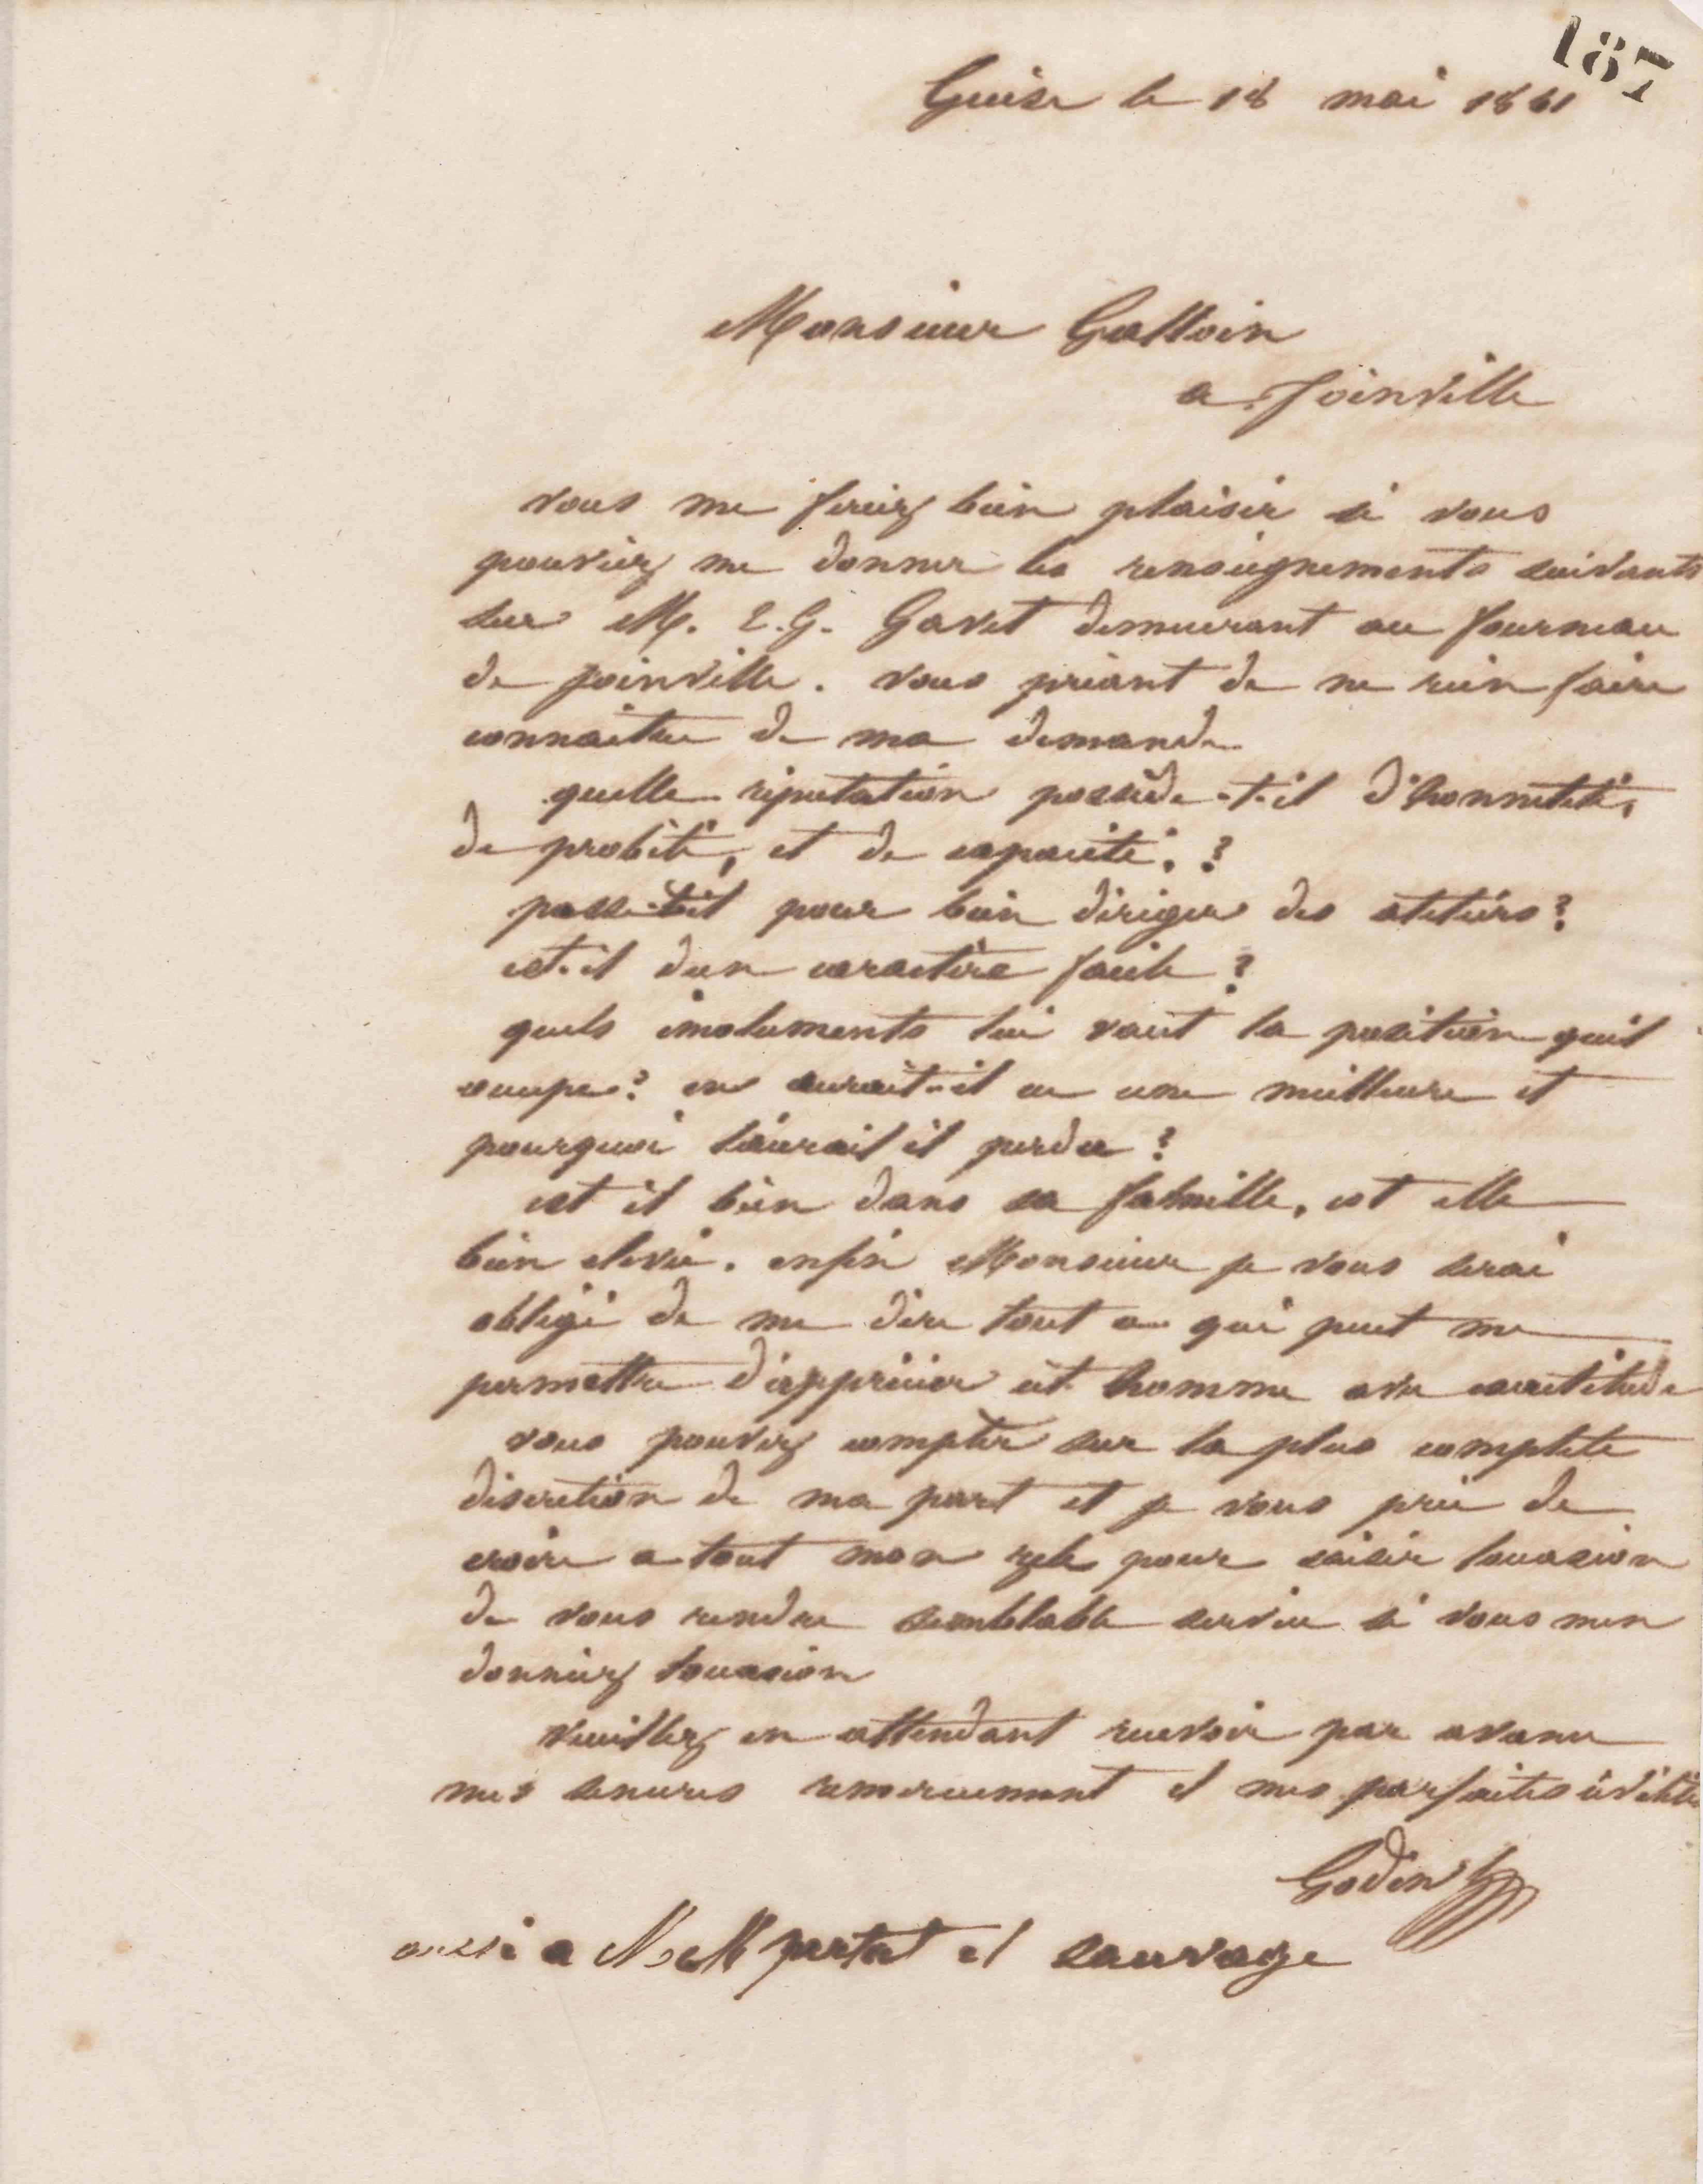 187
Guise le 18 mai 1861
Monsieur Galloin
a Joinville
vous me feriez bien plaisir si vous
pouviez me donner les renseignements suivants
sur M. E. G. Gavet demeurant au fourneau
de Joinville. vous priant de ne rien faire
connaitre de ma demande
quelle réputation possède-t-il d'honneteté,
de probité, et de capacité. ?
passe-t-il pour bien diriger des ateliers ?
est-il d'un caractère facile ?
quels émoluments lui vaut la position quil
occupe ? en aurait-il eu une meilleure et
pourquoi l'aurait il perdue ?
est il bien dans sa famille, est elle
bien elevée. enfin Monsieur je vous serai
obligé de me dire tout ce qui peut me
permettre d'apprécier cet homme avec exactitude
vous pouvez compter sur la plus complete
discretion de ma part et je vous prie de
croire a tout mon zele pour saisir loccasion
de vous rendre semblable service si vous men
donniez loccasion
veuillez en attendant recevoir par avance
mes sinceres remerciement et mes parfaites civilités
Godin
aussi a M M et sauvage